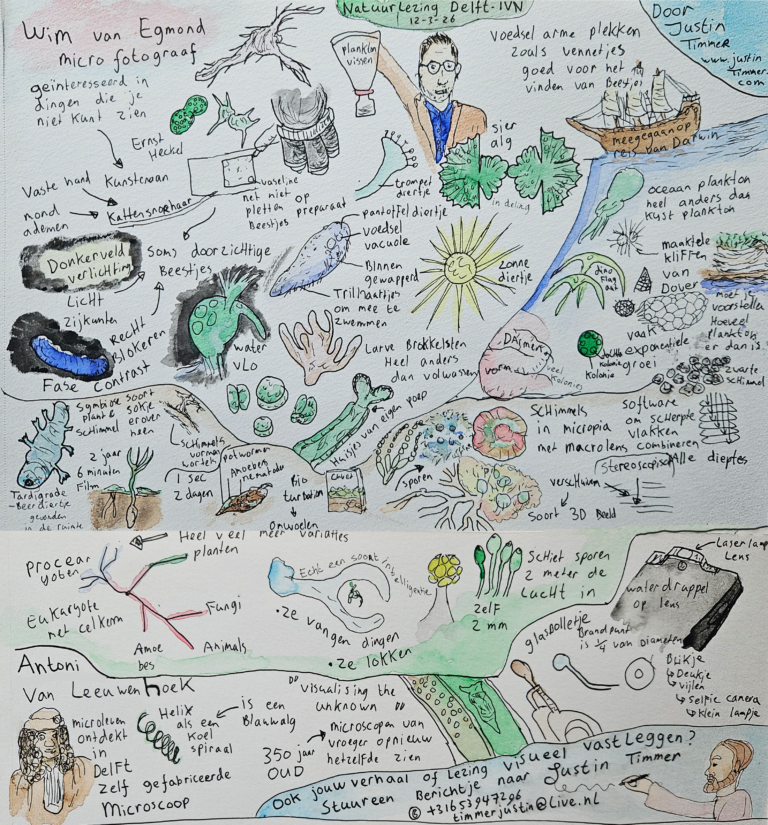 Natuurlezing Delft-IVN
12-3-26
Door
Justin
Timmer
www.justin
Timmer.
com
Wim van Egmond
micro fotograaf
geïnteresseerd in
dingen die je
niet kunt zien
Ernst
Heckel
plankton
vissen
Voedsel arme plekken
zoals vennetjes
goed voor het
vinden van Beestjes
meegegaan op
reis van Darwin
sier
alg
in deling
Vaste hand
Kunstenaar
Kattensnorhaar
nond
ademen
vaseline
net niet op
pletten
Beestjes preparaat
trompet
diertje
pantoffel diertje
voedsel
vacuole
Binnen
gewapperd
Trilhaartjes
om mee te
zwemmen
Zonne
diertje
oceaan plankton
heel anders dan
kust plankton
maakte
kliffen
van
Dover
moet je
voorstellen
Hoeveel
Plankton
er dan is.
dino
flag
Donkerveld
verlichting
Soms doorzichtige
Beestjes
Licht
zijkanten
Recht
Blokeren
Fase Contrast
water
vlo
Larve Brokkelster
Heel anders
dan volwassen
vorm
vaak
exponentiele
groei
Kolonie
zwarte
schimmel
Symbiose soort
plant sokje
schimmel erover
heen
2 jaar
6 minuten
Film
Tardigrade
-Beerdiertje
geworden
in de ruimte
schimmels
vormen
wortels
1 sec
2 dagen
potwormen
Amoeben
nematode
Bio
turbation
Omwoelen
Huisjes van eigen poep
sporen
Schimmels
in micropia
met macrolens
software
om scherpte
vlakken
combineren
Alle dieptes
Stereoscopisch
verschuiven
soort 3D Beeld
Heel veel meer variaties
planten
Procear
yoten
Eukaryote
met celkern
Fungi
Amoe
bes
Animals
Echt een soort intelligentie
• ze vangen dingen
• ze lokken
Schiet sporen
2 meter de
Lucht in
zelf
2 mm
Laserlamp
Lens
waterdruppel
op lens
glasbolletje
Brandpunt
is ¼ van Diameter
Blikje
↳ Deukje
↳ vijlen
↳ selfie camera
↳ klein lampje
Antoni
van Leeuwenhoek
microleven
ontdekt
in
Delft
zelf gefabriceerde
Microscoop
Helix
als een
Koel
spiraal
is een
Blauwalg
"visualising the
unknown"
microscopen van
vroeger opnieuw
hetzelfde zien
350 jaar
OUD
Ook jouw verhaal of lezing visueel vastleggen?
Stuur een Berichtje naar Justin Timmer
+31653947296
timmerjustin@live.nl